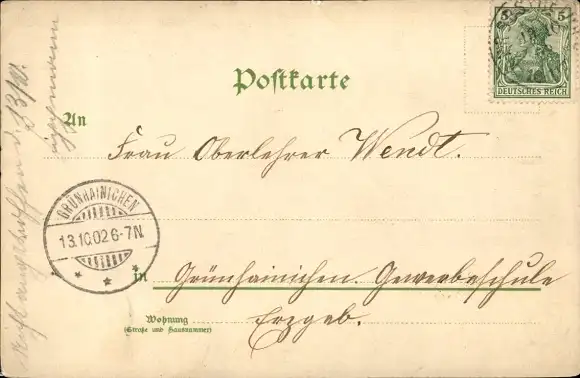 5 5
DEUTSCHES REICH
Postkarte
An
Frau Oberlehrer Wendt.
GRÜNHAINICHEN
13.10.02.6-7N.
* * *
in Grünhainichen. Gewerbeschule
Wohnung
(Straße und Hausnummer)
Erzgeb.